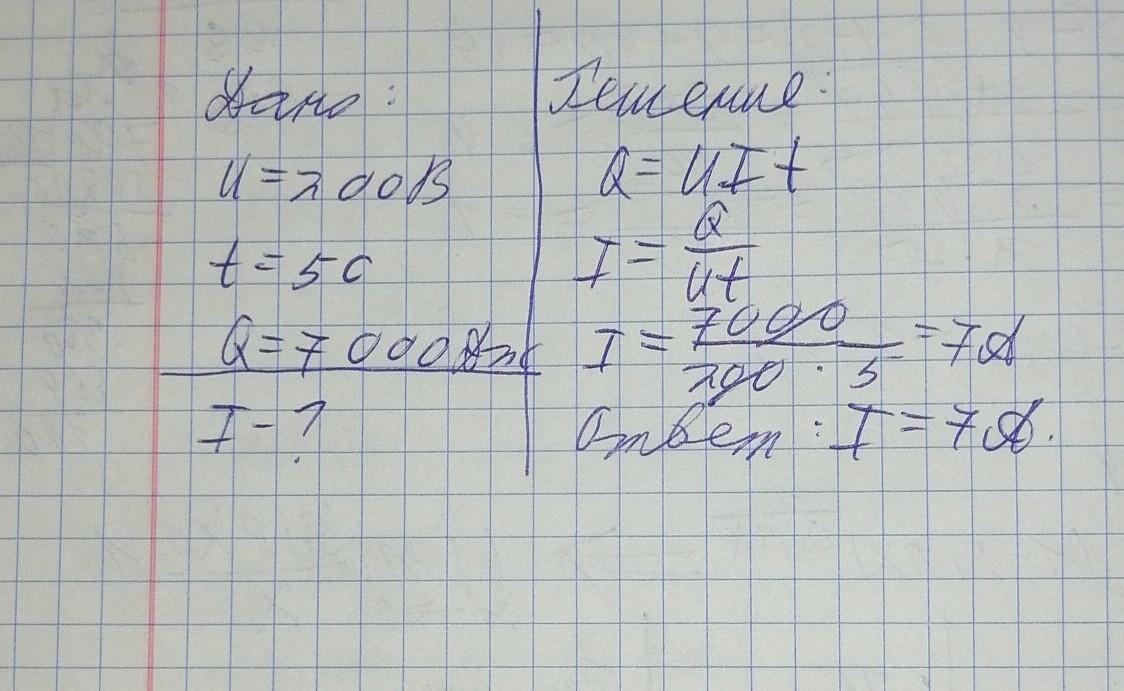 Дано:
U = 200В
t = 5с
Q = 7000Дж
I - ?
Решение:
Q = UIt
I = Q/Ut
I = 7000/200 · 5 = 7А
Ответ: I = 7А.